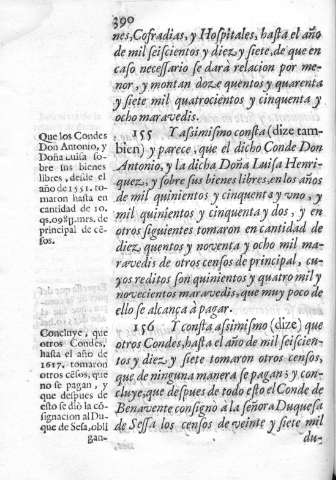 390
nes, Cofradias, y Hospitales, hasta el año
de mil seiscientos y diez y siete, de que en
caso necessario se darà relacion por me-
nor, y montan doze quentos y quarenta
y siete mil quatrocientos y cinquenta y
ocho maravedis.
155 Y assimismo consta (dize tam-
bien) y parece, que el dicho Conde Don
Antonio, y la dicha Doña Luisa Henri-
quez, y sobre sus bienes libres, en los años
de mil quinientos y cinquenta y vno, y
mil quinientos y cinquenta y dos, y en
otros siguientes tomaron en cantidad de
diez quentos y noventa y ocho mil ma-
ravedis de otros censos de principal, cu-
yos reditos son quinientos y quatro mil y
novecientos maravedis, que muy poco de
ello se alcança à pagar.
156 Y consta assimismo (dize) que
otros Condes, hasta el año de mil seiscien-
tos y diez y siete tomaron otros censos,
que de ninguna manera se pagan; y con-
cluye, que despues de todo esto el Conde de
Benavente consignò à la señora Duquesa
de Sessa los censos de veinte y siete mil
du-
Que los Condes
Don Antonio, y
Doña Luisa so-
bre sus bienes
libres, desde el
año de 1551. to-
maron hasta en
cantidad de 10.
qs. 098y. mrs. de
principal de cẽ-
sos.
Concluye, que
otros Condes,
hasta el año de
1617. tomaron
otros cẽsos, que
no se pagan, y
que despues de
esto se diò la cõ-
signacion al Du-
que de Sesa, obli
gan-